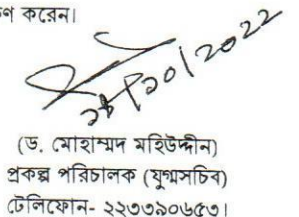 ণ করেন।
(ড. মোহাম্মদ মহিউদ্দীন)
প্রকল্প পরিচালক (যুগ্মসচিব)
টেলিফোন- ২২৩৩৯০৬৫৩।